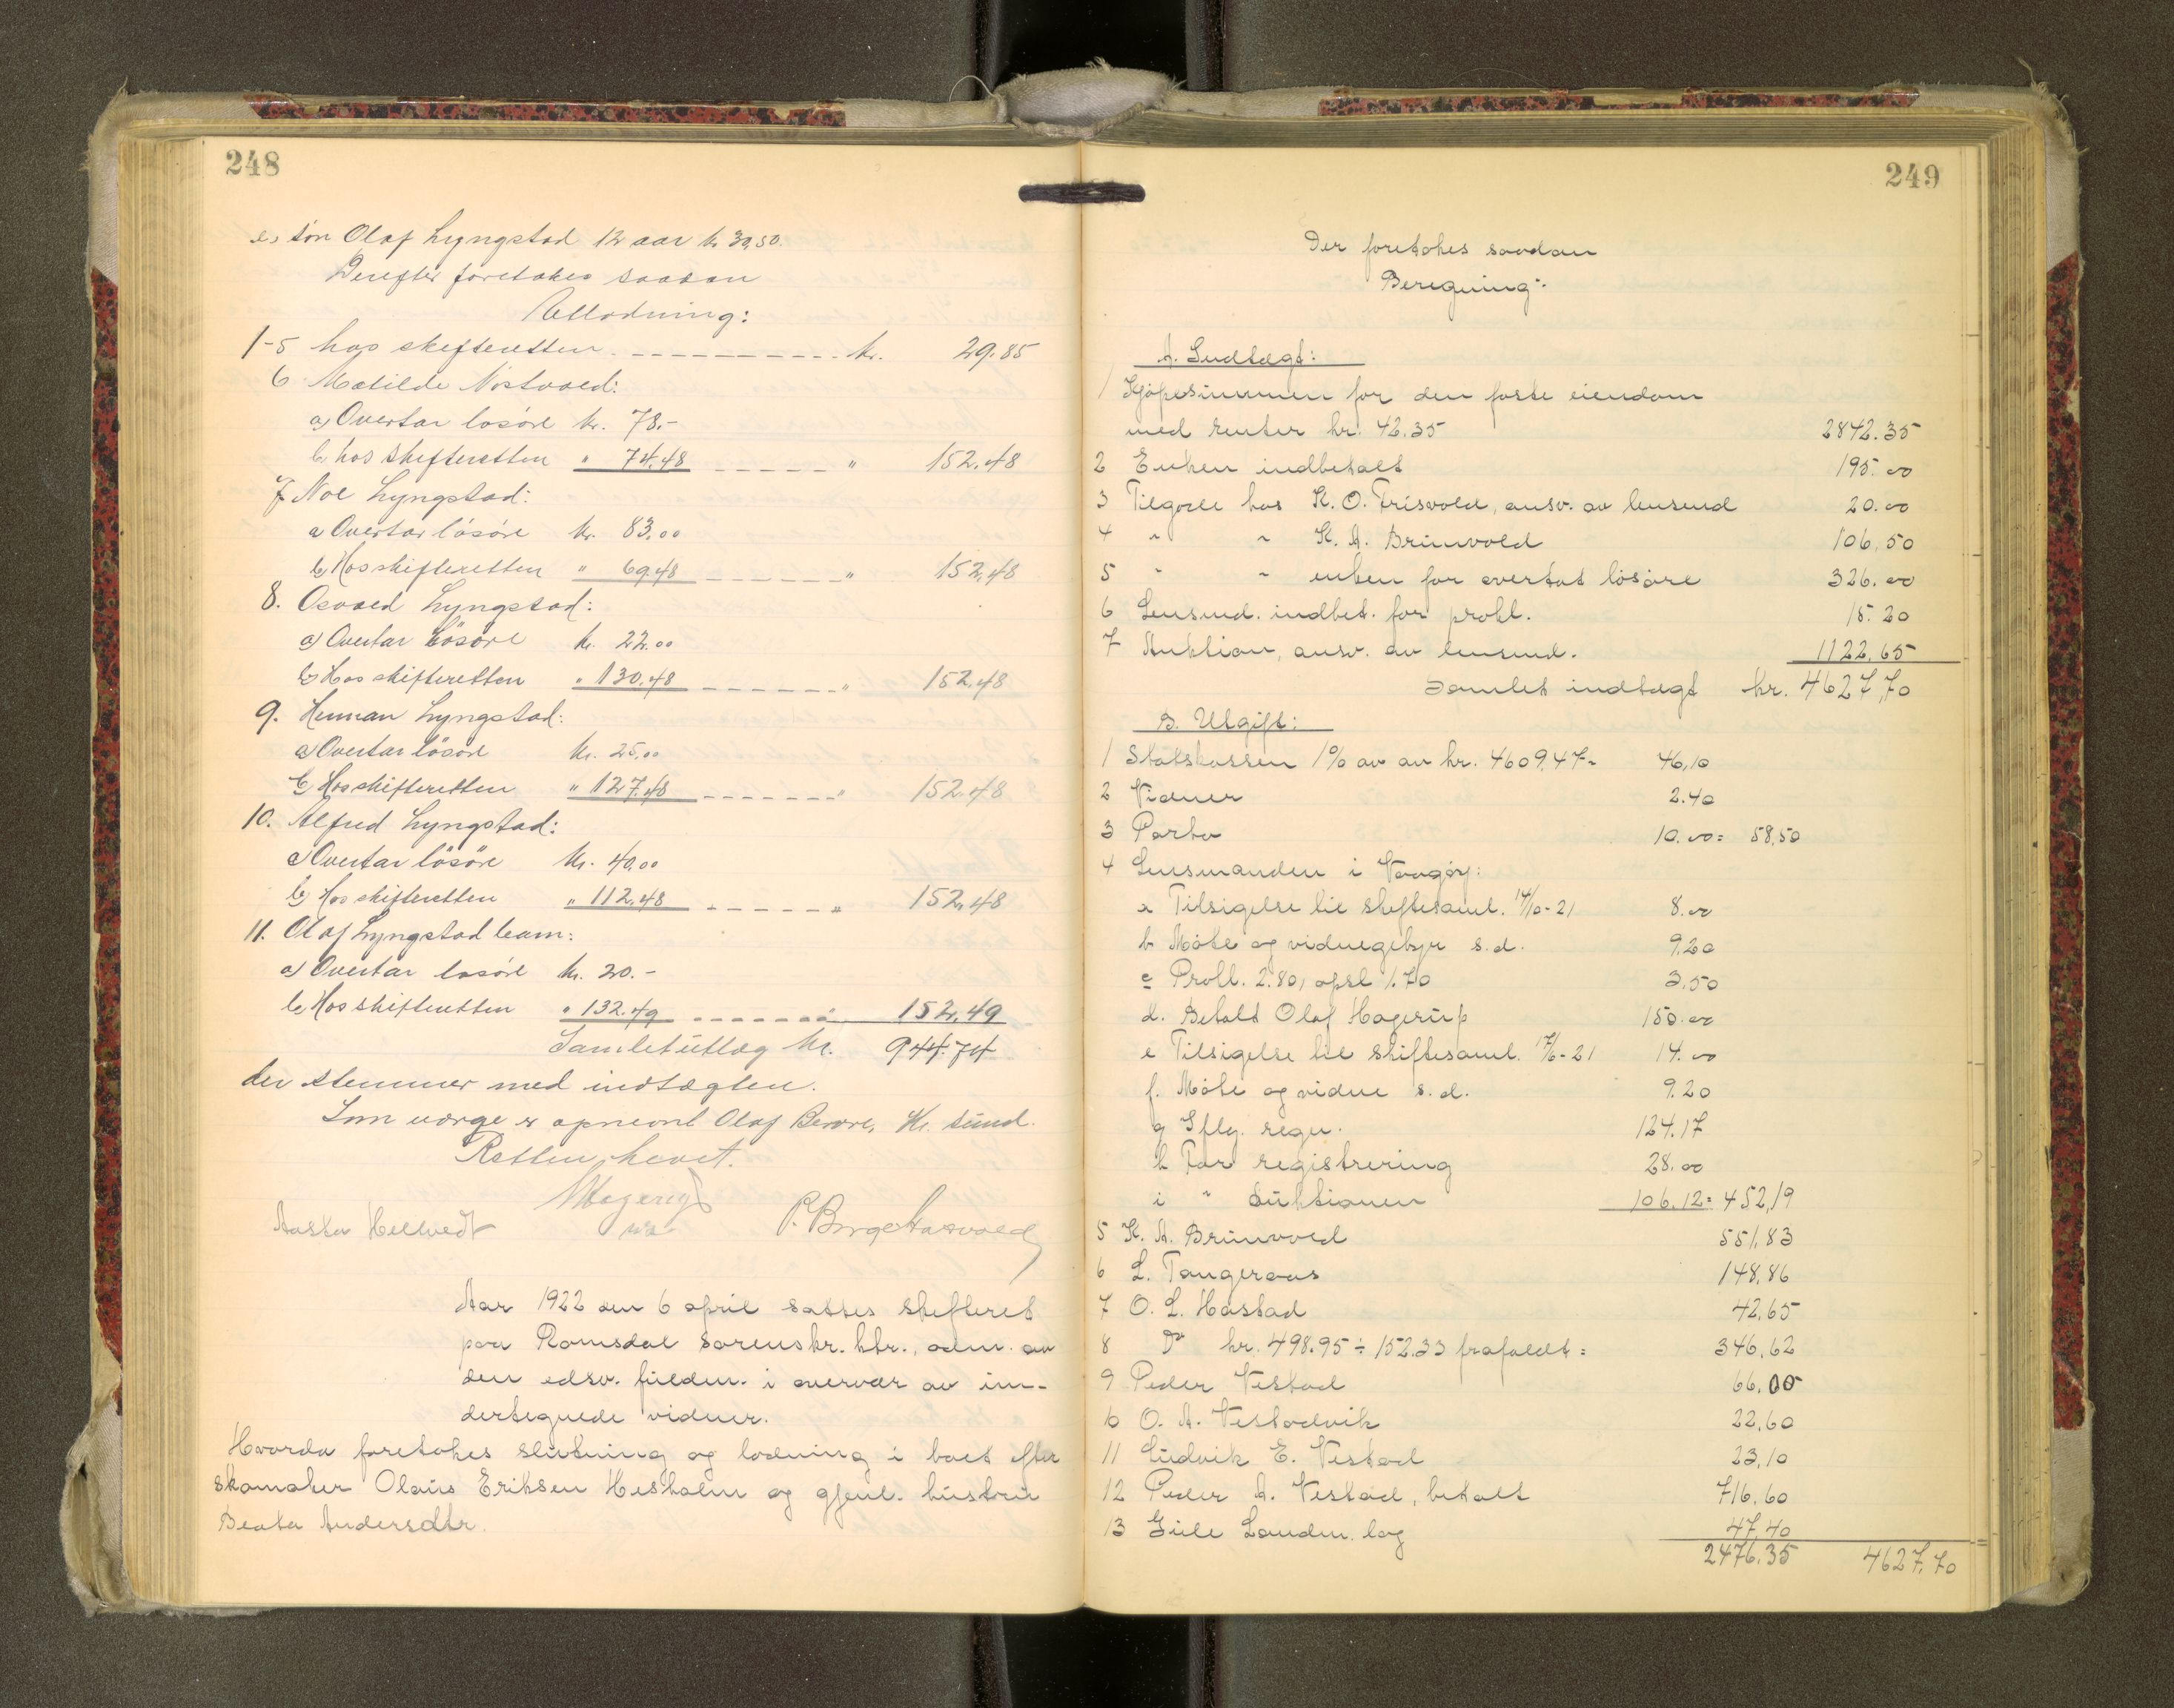 248
e, søn Olaf Lyngstad 12 aar kr 30,50.
Derefter foretokes saadan
Utlodning:
1-5 hos skifteretten ---------- kr. 29.85
6 Matilde Nostvold:
a) Overtar løsøre kr. 78.-
b hos skifteretten " 74.48 ----- " 152.48
7 Noe Lyngstad:
a Overtar løsøre kr. 83.00
b, Hos skifteretten " 69.48 ----- " 152.48
8. Osvald Lyngstad:
a) Overtar løsøre kr. 22.00
b, Hos skifteretten " 130.48 ------ " 152.48
9. Herman Lyngstad:
a) Overtar løsøre kr. 25.00
b, Hos skifteretten " 127.48 ------ " 152.48
10. Alfred Lyngstad:
a Overtar løsøre kr. 40.00
b, Hos skifteretten " 112.48 ----- " 152.48
11. Olaf Lyngstad
a) Overtar løsøre kr. 20.-
b, Hos skifteretten " 132.49 ------- " 152.49
Samlet utlæg kr. 944.74
der stemmer med indtægten.
Som værge er opnevnt Olaf Kr. sund.
Retten hevet.
Aasta Hellvedt
Aar 1922 den 6 april sattes skifteret
paa Romsdal sorenskr. ktr., adm. av
den edsv. fuldm. i overvær av un-
dertegnede vidner.
Hvorda foretokes slutning og lodning i boet efter
skomaker Olaus Eriksen Hesholm og gjenl. hustru
Beata Andersdtr.
249
Der foretokes saadan
Beregning:
A. Indtægt:
1 Kjøpesummen for den faste eiendom
med renter kr. 42.35 2842.35
2 Enken indbetalt 195.00
3 Tilgode hos K. O. Frisvold, ansv. av lensmd 20.00
4 " " K. A. Brunvold 106.50
5 " " enken for overtat løsøre 326.00
6 Lensmd. indbet. for prokl. 15.20
7 Auktion, ansv. av lensmd. 1122.65
Samlet indtægt kr. 4627,70
B. Utgift:
1 Statskassen 1% av av kr. 4609.47 = 46,10
2 Vidner 2.40
3 Porto 10.00 = 58,50
4 Lensmanden i Vaagøy:
a Tilsigelse til skiftesaml. 14/10-21 8.00
b Møte og vidnegebyr s.d. 9.20
c Prokl. 2.80, opsl 1.70 3,50
d. Betalt Olaf Hagerup 150.00
e Tilsigelse til skiftesaml. 17/6-21 14.00
f. Møte og vidne s.d. 9.20
g Iflg. regn. 124.17
h For registrering 28.00
i " auktionen 106.12 = 452,19
5 K. A. Brunvold 551,83
6 L. Tangeraas 148,86
7 O. L. Hastad 42,65
8 Do kr. 498.95 ÷ 152.33 frafaldt = 346,62
9 Peder Vestad 66.00
10 O. A. Vestadvik 22,60
11 Ludvik E. Vestad 23,10
12 Peder A. Vestad, betalt 716,60
13 Gule Landm. lag 47,40
2476.35 4627,70